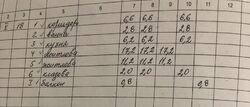 5 6 7 8 9 10 11
I 18 1 коридор 6,6 6,6 6,6
2 ванна 2,8 2,8 2,8
3 кухня 6,2 6,2 6,2
4 житлова 17,2 17,2 17,2
5 житлова 11,2 11,2 11,2
6 кладова 2,0 2,0
7 балкон 0,8 0,8